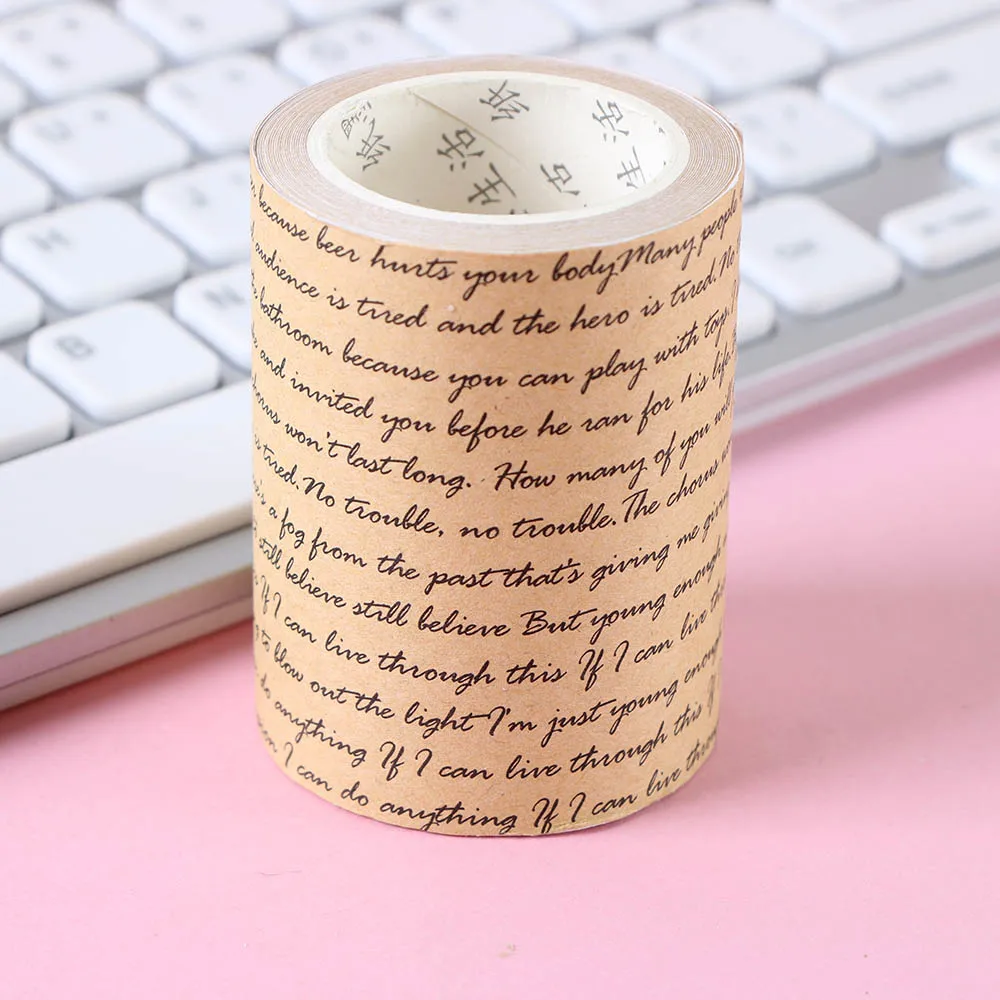 纸 生活 纸 生活 活 生活
because beer hurts your body Many people
audience is tired and the hero is tired. No
bathroom because you can play with toys.
and invited you before he ran for his life.
chorus won't last long. How many of you will
is tired. No trouble, no trouble. The chorus
a fog from the past that's giving me
still believe still believe But young enough
If I can live through this If I can live
to blow out the light I'm just young enough
do anything If I can live through this If
I can do anything If I can live
B